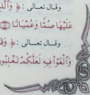 وقال تعالى : ﴿ وَالَّذِ
عَلَيْهَا صُمًّا وَعُمْيَانًا ﴾
وقال تعالى : ﴿
وَالْغَوْا فِيهِ لَعَلَّكُمْ تَغْلِبُونَ